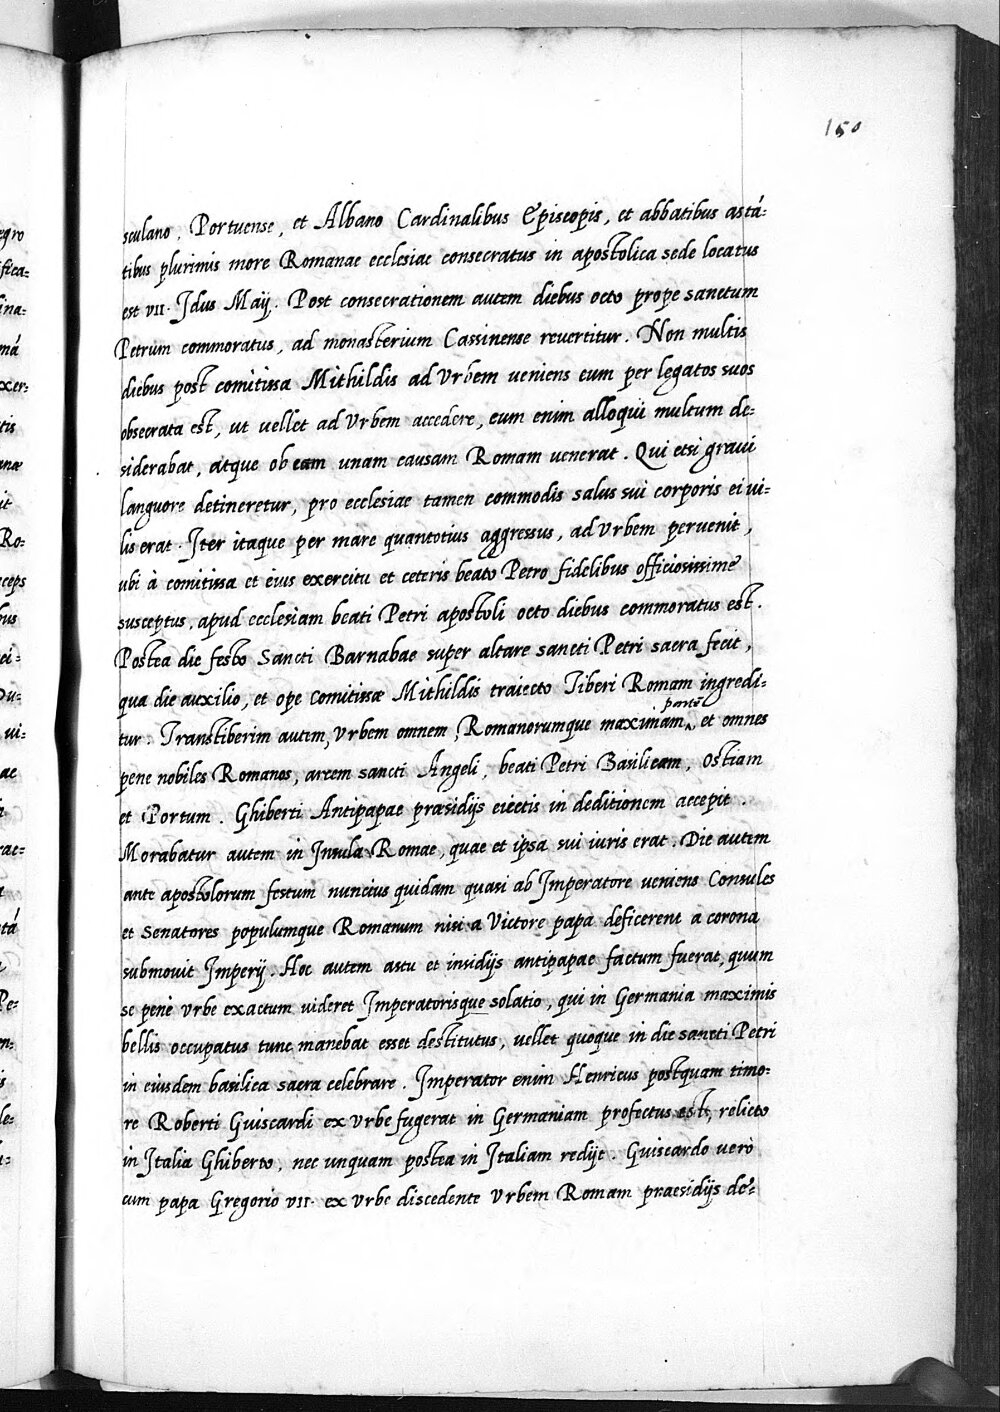 150
sculano, Portuense, et Albano Cardinalibus Episcopis, et abbatibus astá=
tibus plurimis more Romanae ecclesiae consecratus in apostolica sede locatus
est VII. Idus Maij. Post consecrationem autem diebus octo prope sanctum
Petrum commoratus, ad monasterium Cassinense revertitur. Non multis
diebus post comitissa Mithildis ad Vrbem ueniens eum per legatos suos
obsecrata est, ut uellet ad Vrbem accedere, eum enim alloqui multum de=
siderabat, atque ob eam unam causam Romam uenerat. Qui etsi graui
languore detineretur, pro ecclesiae tamen commodis salus sui corporis ei ui=
lis erat. Iter itaque per mare quantotius aggressus, ad Vrbem peruenit,
ubi à comitissa et eius exercitu et ceteris beato Petro fidelibus officiosissime
susceptus, apud ecclesiam beati Petri apostoli octo diebus commoratus est.
Postea die festo Sancti Barnabae super altare sancti Petri sacra fecit,
qua die auxilio, et ope comitissæ Mithildis traiecto Tiberi Romam ingredi=
tur. Transtiberim autem, Vrbem omnem, Romanorumque maximam partē et omnes
pene nobiles Romanos, arcem sancti Angeli, beati Petri Basilicam, Ostiam
et Portum. Ghiberti Antipapae præsidijs eiectis in deditionem accepit.
Morabatur autem in Insula Romae, quae et ipsa sui iuris erat. Die autem
ante apostolorum festum nuncius quidam quasi ab Imperatore ueniens Consules
et Senatores populumque Romanum nisi a Victore papa deficerent a corona
submouit Imperij. Hoc autem astu et insidijs antipapae factum fuerat, quum
se pene Vrbe exactum uideret Imperatorisque solatio, qui in Germania maximis
bellis occupatus tunc manebat esset destitutus, uellet quoque in die sancti Petri
in eiusdem basilica sacra celebrare. Imperator enim Henricus postquam timo=
re Roberti Guiscardi ex Vrbe fugerat in Germaniam profectus est, relicto
in Italia Ghiberto, nec unquam postea in Italiam redijt. Guiscardo uero
cum papa Gregorio VII. ex Vrbe discedente Vrbem Romam praesidijs de=